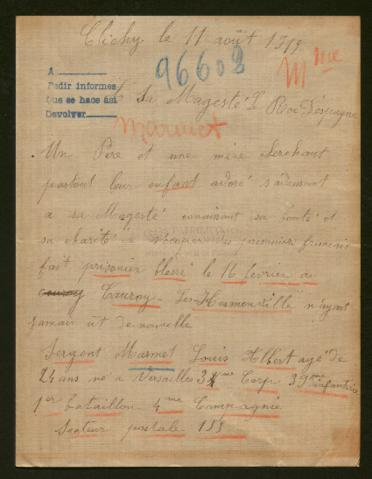 Clichy le 11 août 1919
96608
Mme
A
Pedir informes
Que se haga así
Devolver
Sa Magesté Roi
Marmet
Un Père et une mère cherchant
partout leur enfant adoré s'adressent
a sa Magesté connaisant sa bonté et
sa charité prisonniers français
fait prisonier blessé le 16 fevrier au
Cauroy Les Hermonville n'ayant
jamais ut de nouvelle
Sergent Marmet Louis Albert agé de
24 ans né a Versailles 3 me Corp 39 me infanterie
1er bataillon 4me Compagnie
Secteur postale 155